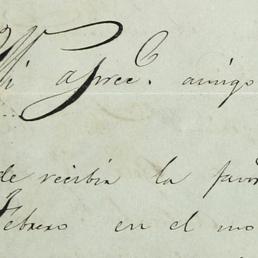 Mi aprec. amigo
de recibir la favo
Febrero en el mo